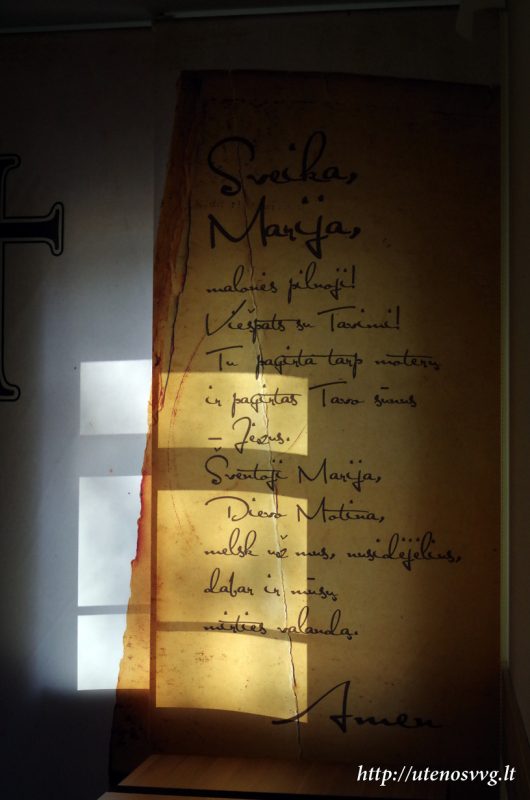 Sveika,
Marija,
malonės pilnoji!
Viešpats su Tavimi!
Tu pagirta tarp moterų
ir pagirtas Tavo sūnus
– Jėzus.
Šventoji Marija,
Dievo Motina,
melsk už mus, nusidėjėlius,
dabar ir mūsų
mirties valandą.
Amen
http://utenosvvg.lt